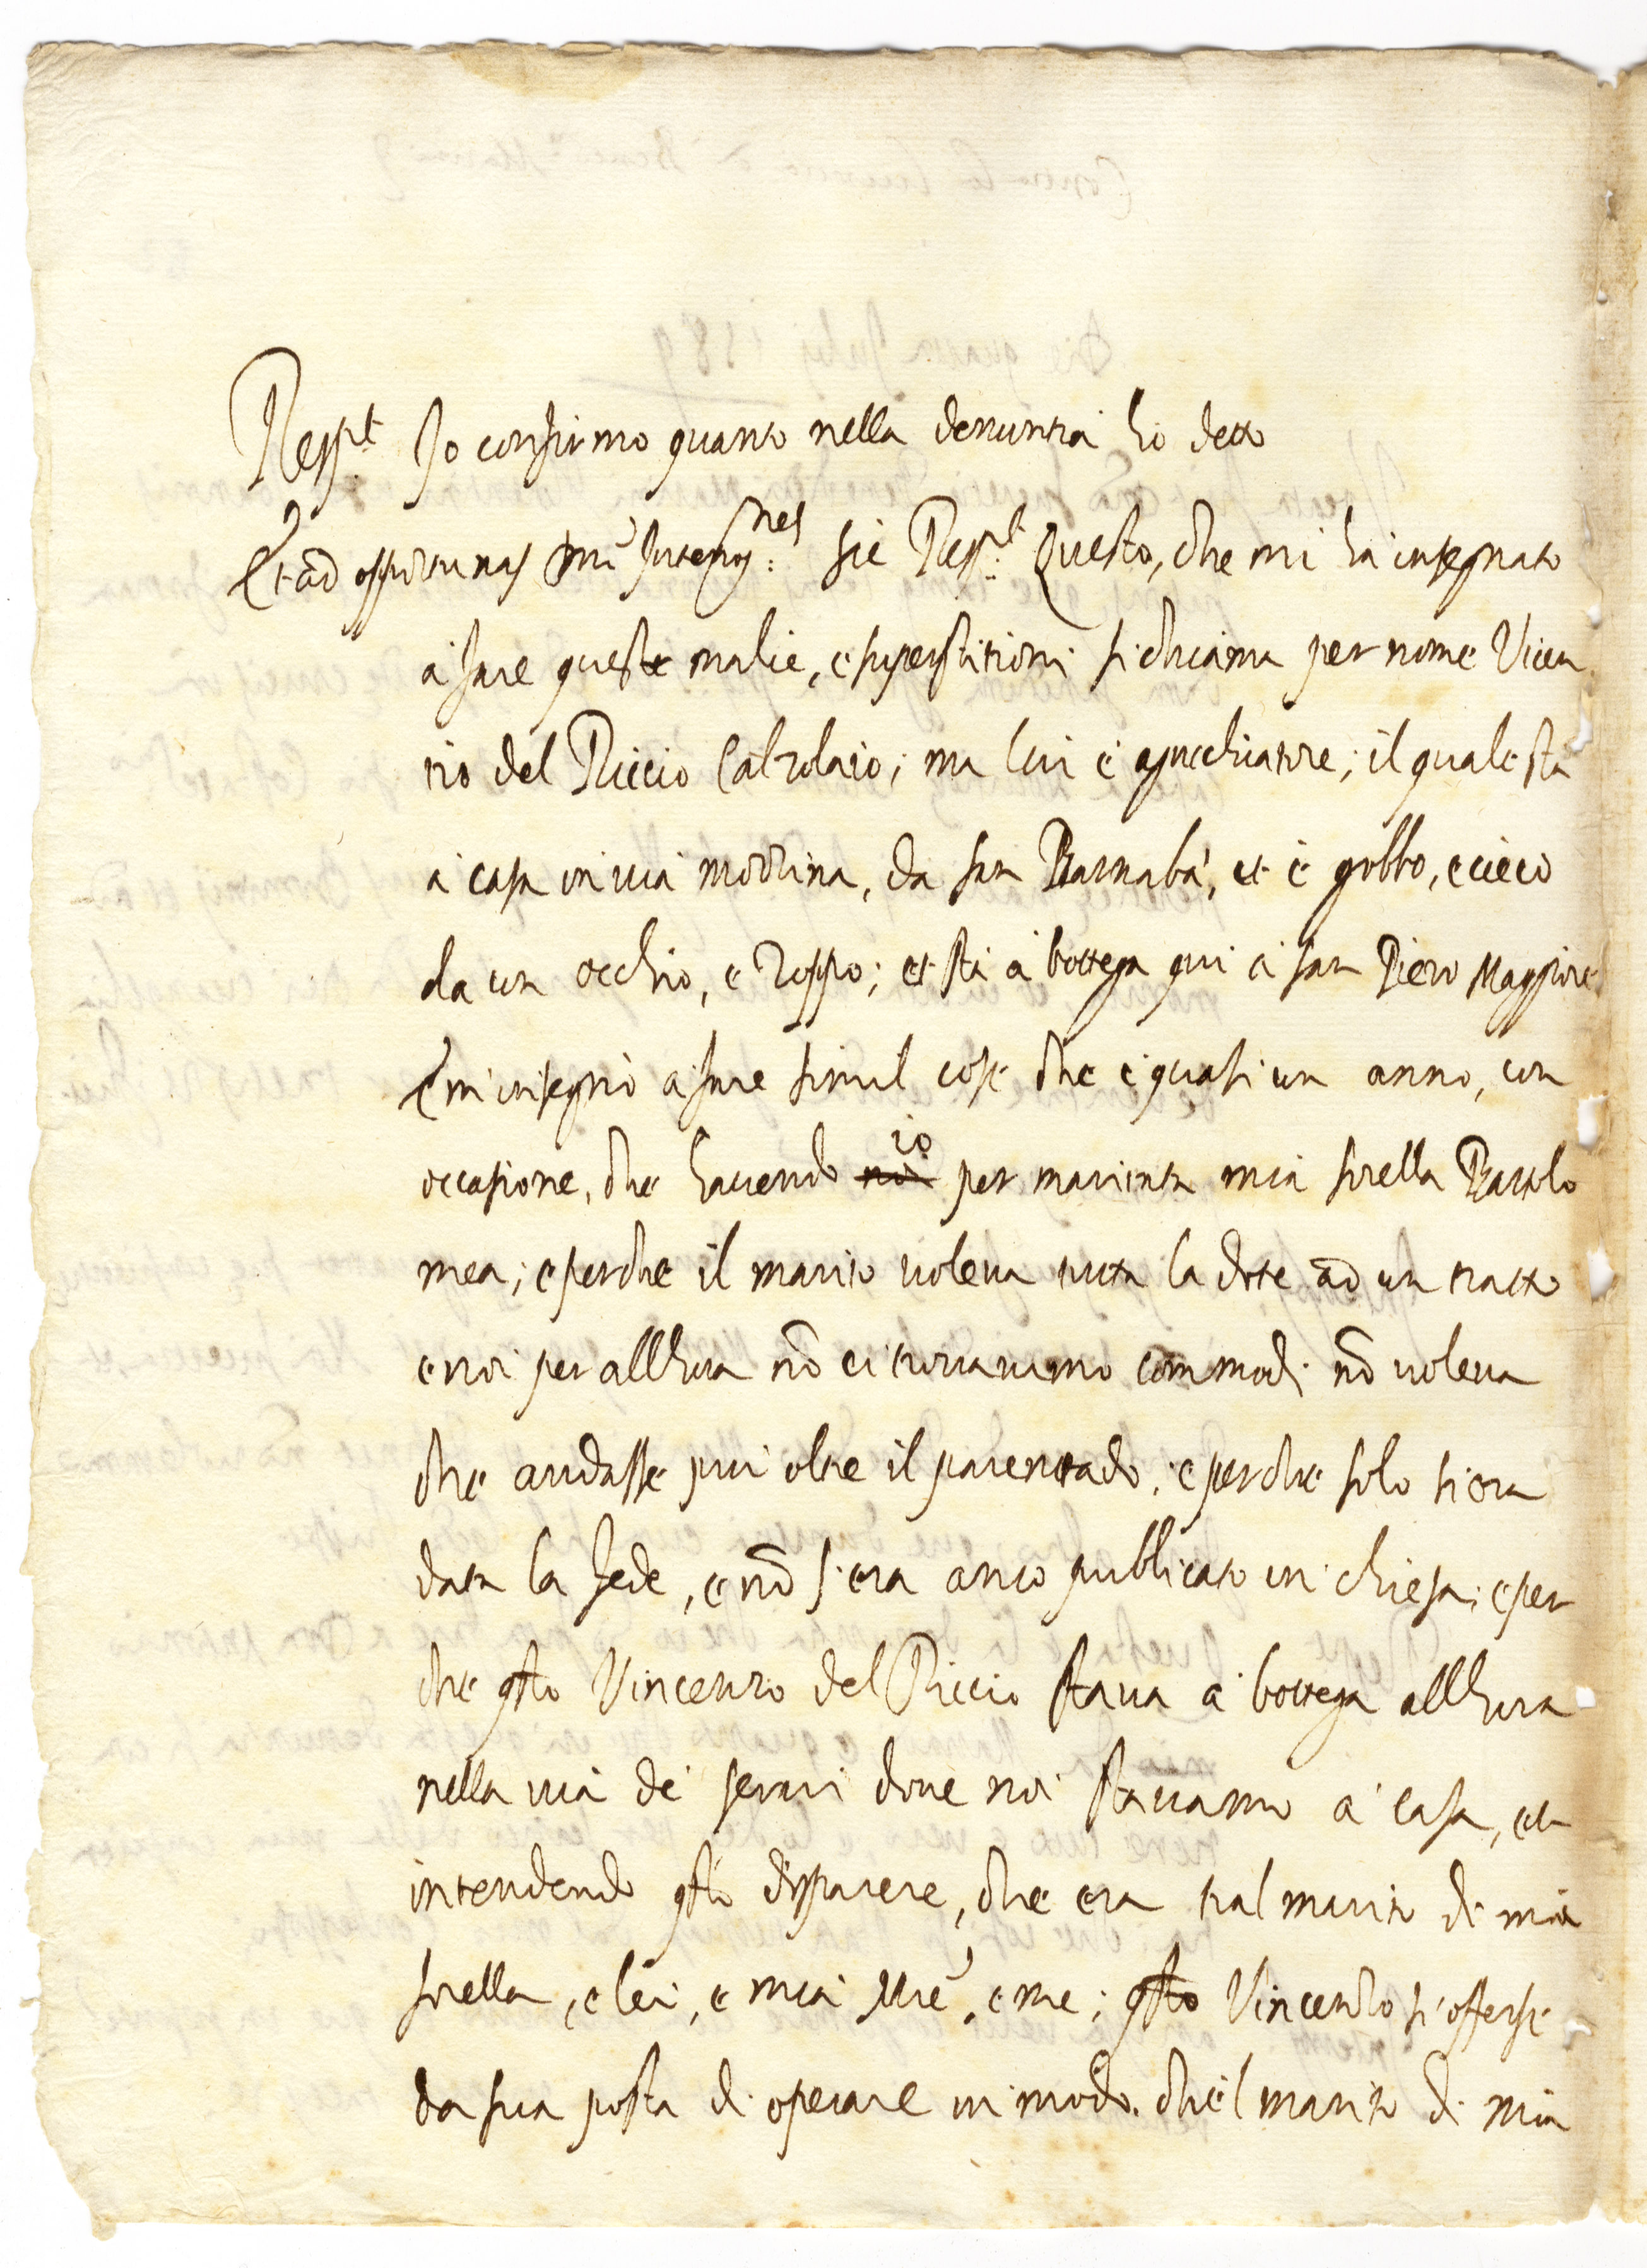 Resp.t Io confirmo quanto nella denuntia ho detto
Et ad opportunas Interrog.nes sic Resp.t Questo, che mi ha insegnato
à fare queste malie, e superstitioni si chiama per nome Vicen
tio del Riccio Calzolaio; ma lui è agucchiatore; il quale sta
à casa in via mozzina, da san Barnaba, et è gobbo, e cieco
da un occhio, e zoppo; et sta à bottega qui à san Piero Maggiore
E m'insegnò à fare simil cose che è quasi un anno, con
occasione, che havendo noi io per maritata mia sorella Bartolo
mea; e perche il marito voleva tutta la dote ad un tratto
e noi per allhora nō ci trovavamo commodi nō voleva
che andasse piu oltre il parentado; e perche solo si era
data la fede, e nō s'era anco publicato in chiesa; e per
che q̄sto Vincenzo del Riccio stava à bottega allhora
nella via de' servi dove noi stavamo à casa, et
intendendo q̄sto disparere, che era tral marito di mia
sorella, e lei, e mia Mre, e me; q̄sto Vincenzo s'offerse
da sua posta di operare in modo. che'l marito di mia